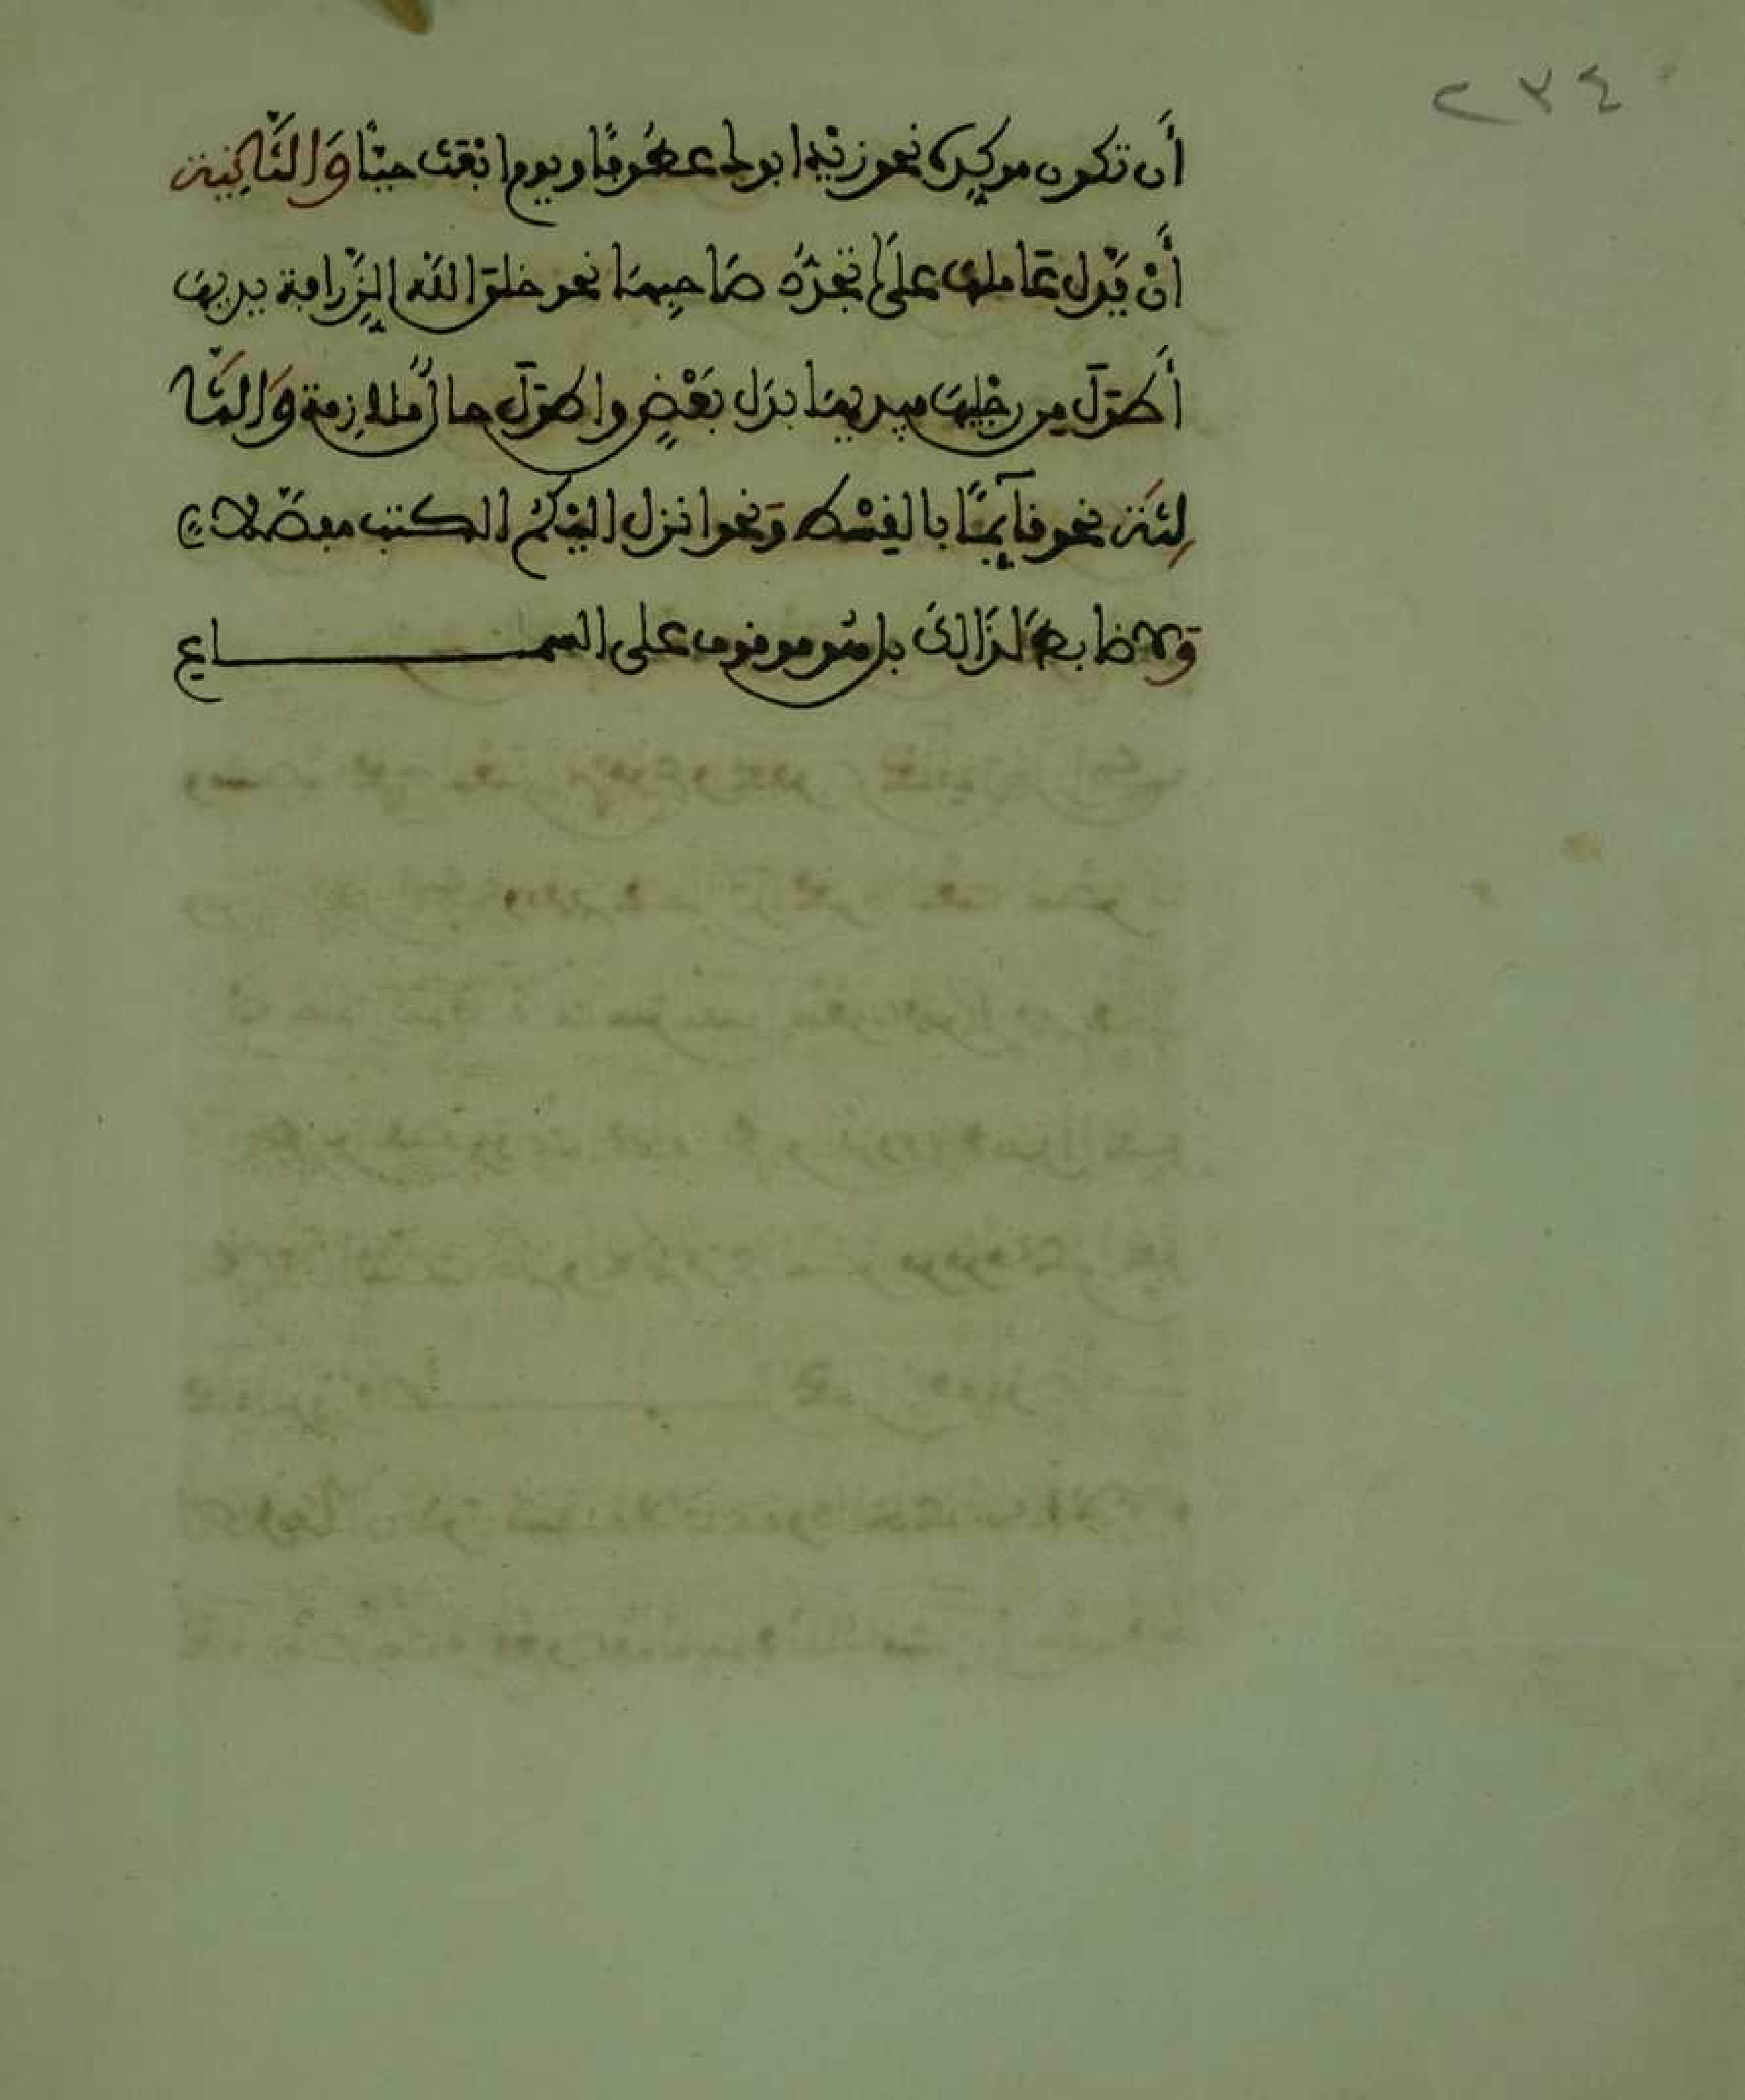 ٢٣٤
أَن تكون موكدة نحو زيد ابوك عطُوفًا ويوم ابْعَث حيًّا وَالثَّانِية
أَنْ يَدُل عَاملها علَى تجدُّد صَاحبهَا نحو خلق اللَّه الزَّرافة يديهَا
أَطوَل من رجْليهَا فيديهَا بدَل بَعْضٍ واطوَل حالٌ ملازمة وَالثَّا
لِثَة نحو قآئمًا بالقِسْط وَنحو انزل اليْكُم الكتب مفصَّلا
وَلا ضابط لذَالك بل هُو موقوف على السمــــاع